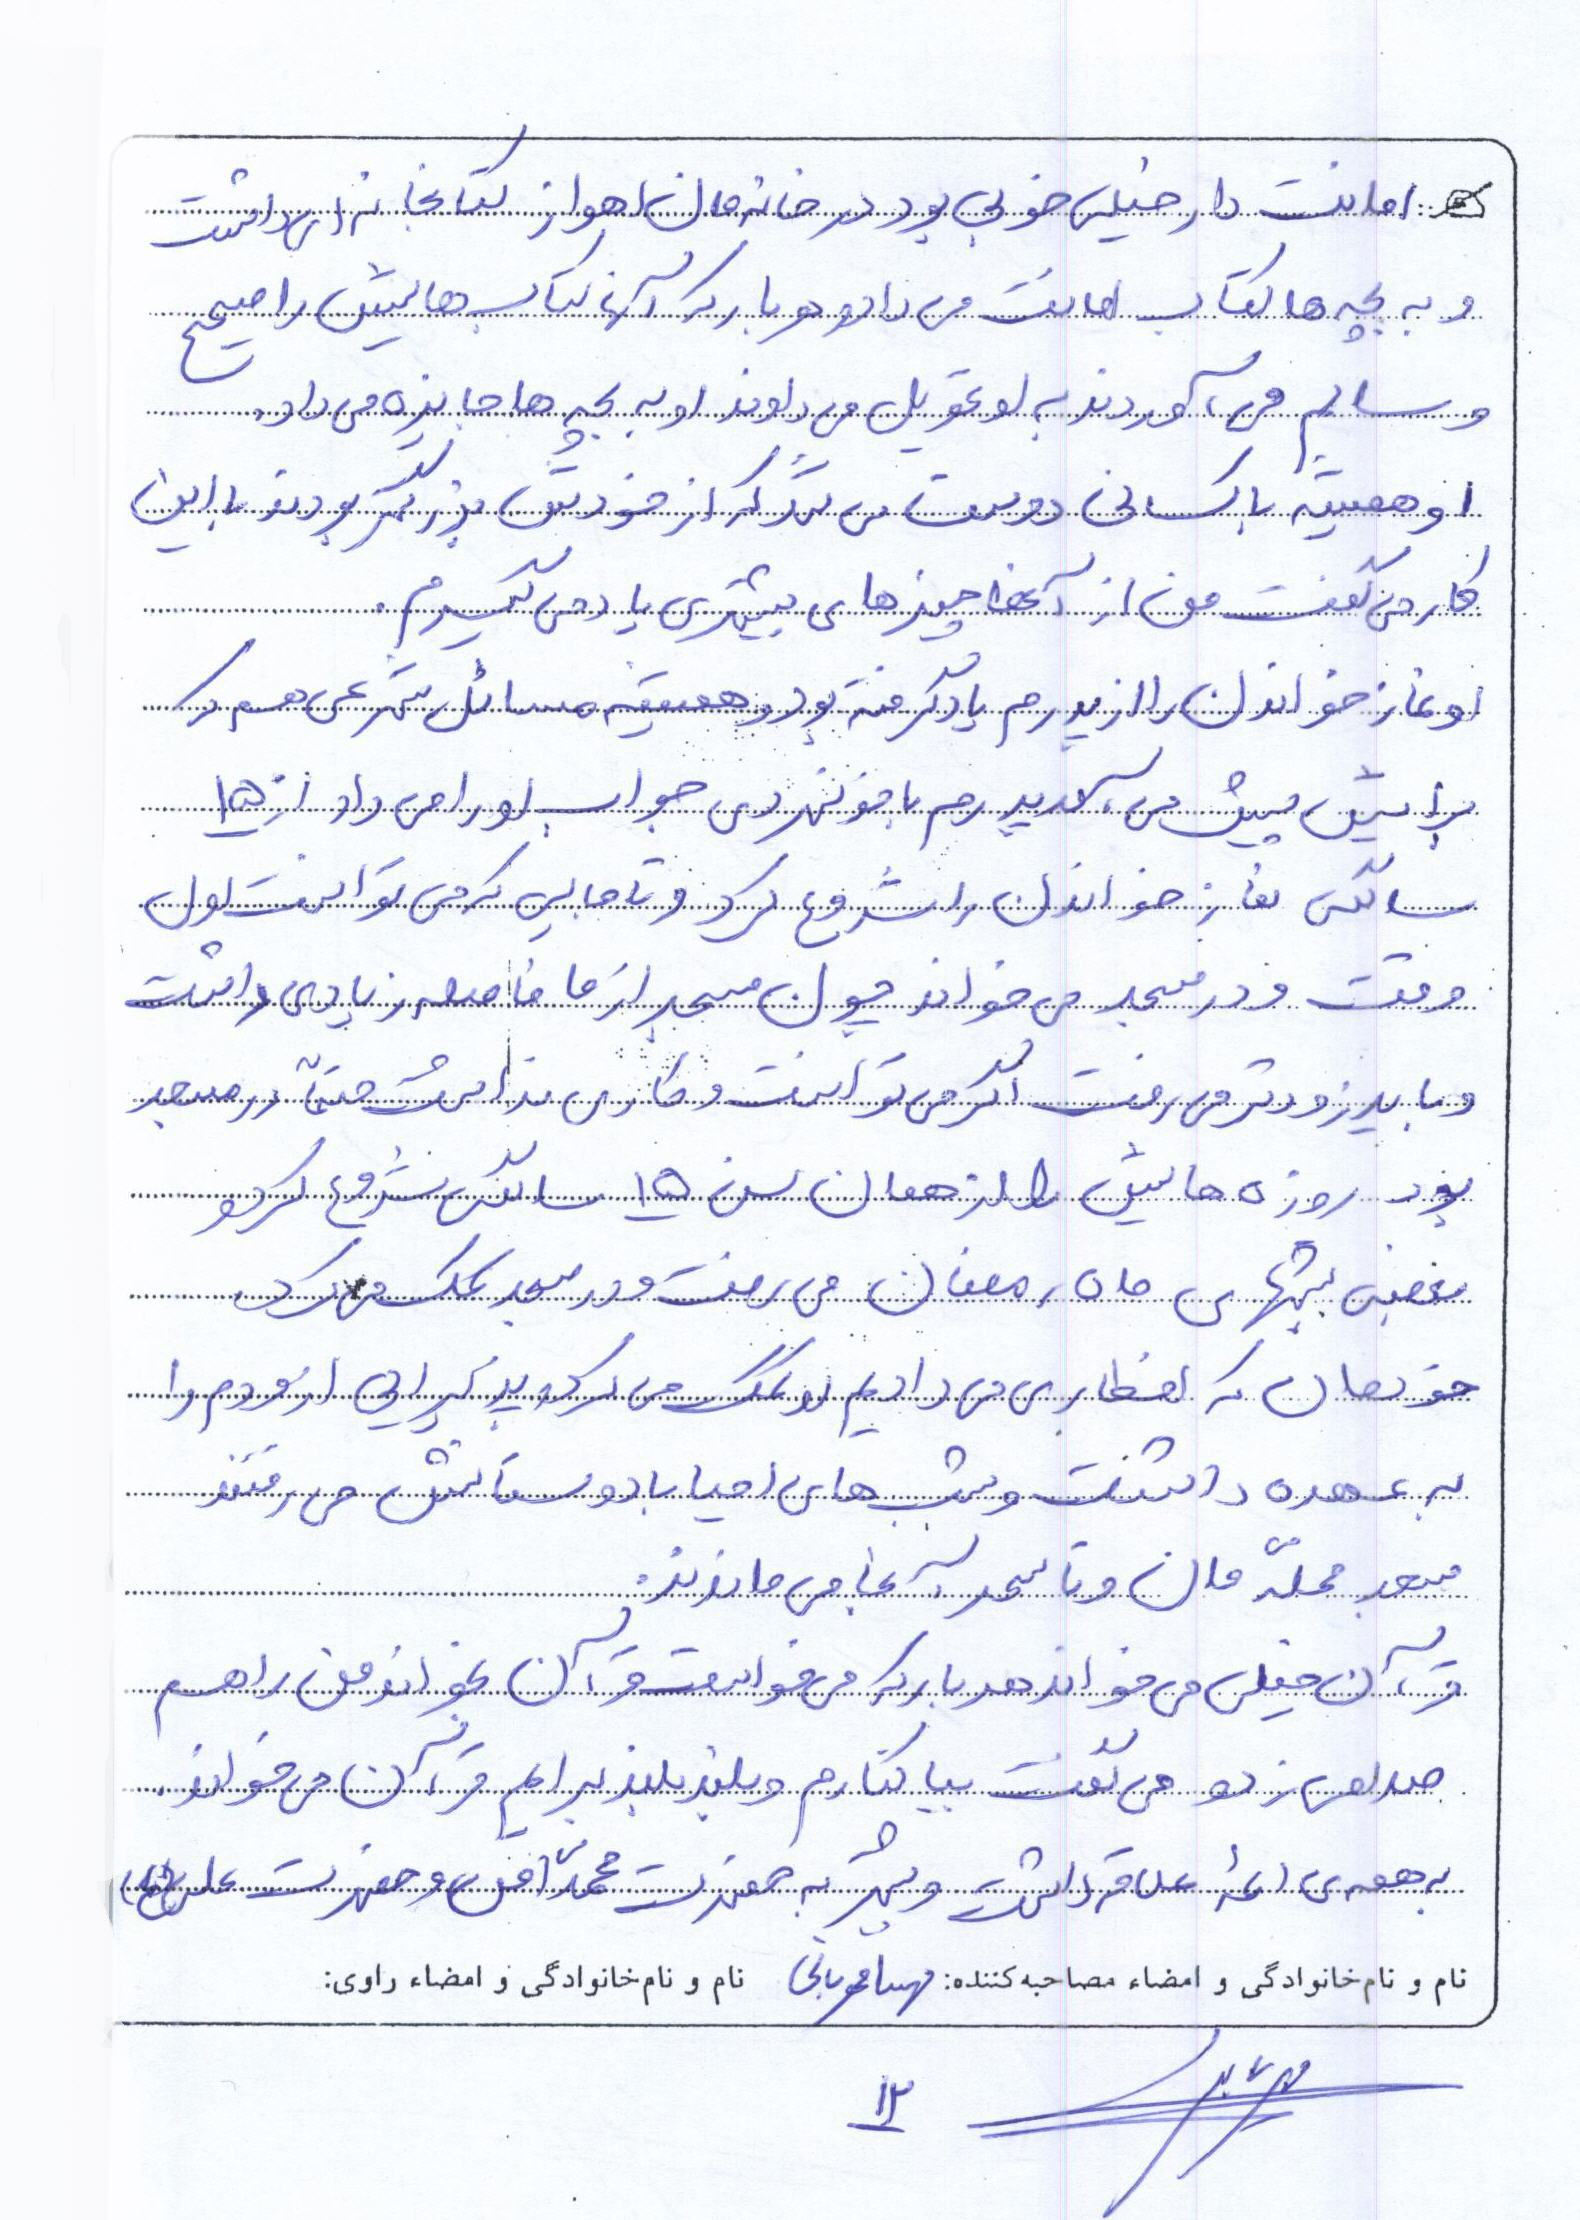 امانت دار خیلی خوبی بود در خانه مان اهواز کتابخانه ای داشت
و به بچه ها کتاب امانت می داد و هر بار که آنها کتاب هایش را صحیح
و سالم می آوردند به او تحویل می دادند او به بچه ها جایزه می داد.
او همیشه با کسانی دوست می شد که از خودش بزرگتر بودند با این
کار می گفت من از آنها چیزهای بیشتری یاد می گیرم.
او نماز خواندن را از پدرم یاد گرفته بود و همیشه مسائل شرعی هم که
برایش پیش می آمد پدرم با خونسردی جواب او را می داد از ۱۵
سالگی نماز خواندن را شروع کرد و تا جایی که می توانست اول
وقت و در مسجد می خواند چون مسجد از ما فاصله زیادی داشت
و باید زودتر می رفت اگر می توانست و کاری نداشت حتماً در مسجد
بود روزه هایش را از همان سن ۱۵ سالگی شروع کرد و
بعضی شبهای ماه رمضان می رفت و در مسجد کمک می کرد.
خودمان که افطاری می دادیم او کمک می کرد و پذیرایی از مردم را
به عهده داشت و شب های احیا با دوستانش می رفتند
مسجد محلّه مان و تا سحر آنجا می ماندند.
قرآن خیلی می خواند هر بار که می خواست قرآن بخواند من را هم
صدا می زد و می گفت بیا کنارم و بلند بلند برایم قرآن می خواند.
به همه ی ائمه علاقه داشت و بیشتر به حضرت محمّد (ص) و حضرت علی (ع)
نام و نام خانوادگی و امضاء مصاحبه کننده: مهسا مهربانی نام و نام خانوادگی و امضاء راوی:
۱۲